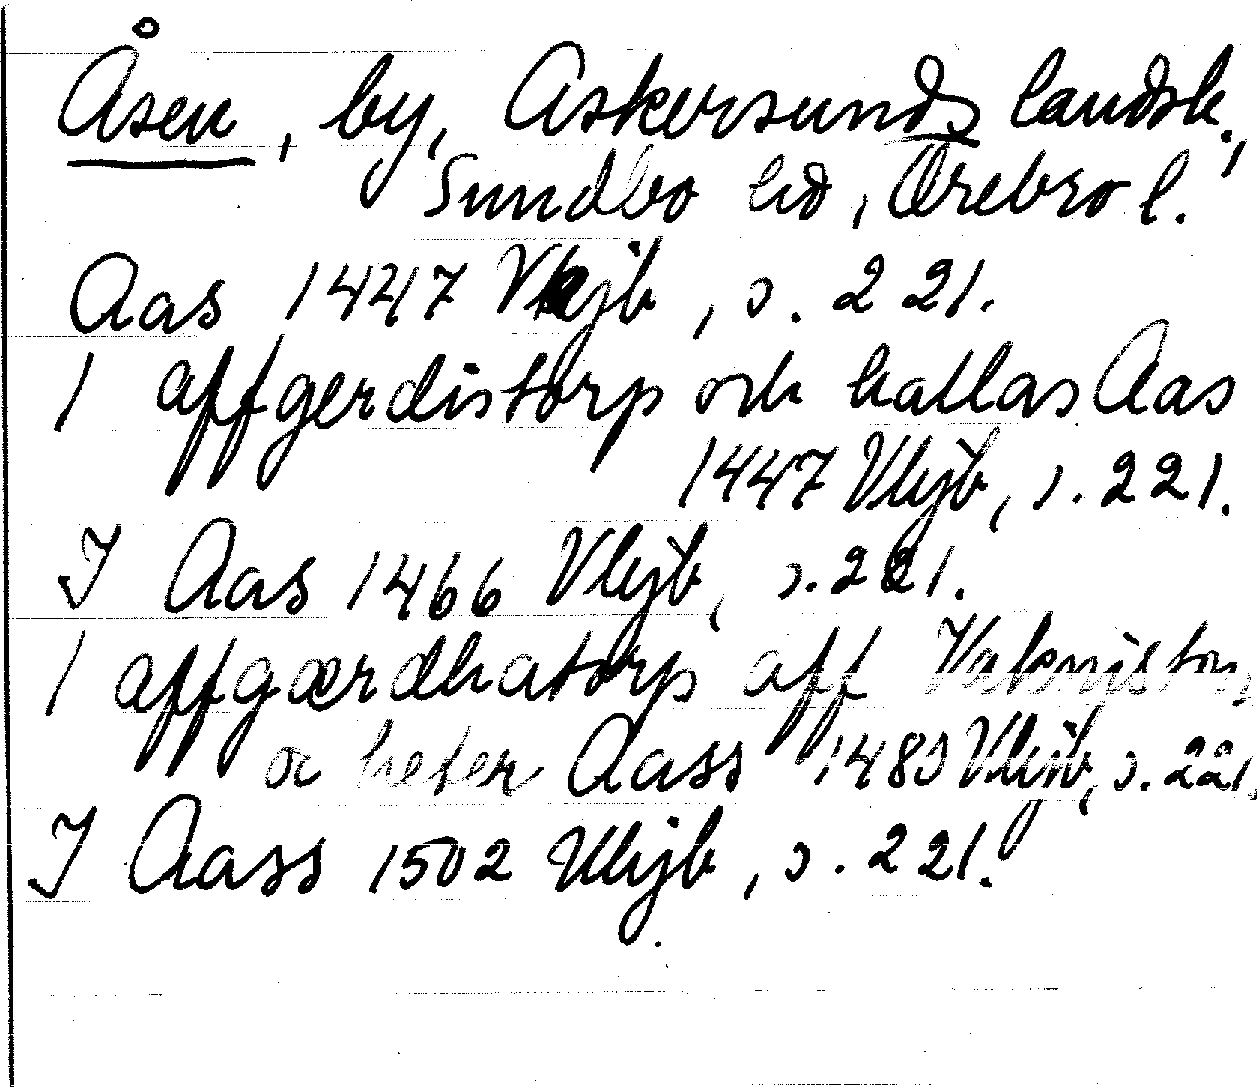 Åsen, by, Askersunds landsk.,
Sundbo hd, Örebro l.
Aas 1447 Vkjb, s. 221.
1 affgerdistorp och kallas Aas
1447 Vkjb, s. 221.
I Aas 1466 Vkjb, s. 221.
1 affgærdhatorp aff
oc heter Aass 1483 Vkjb, s. 221.
I Aass 1502 Vkjb, s. 221.